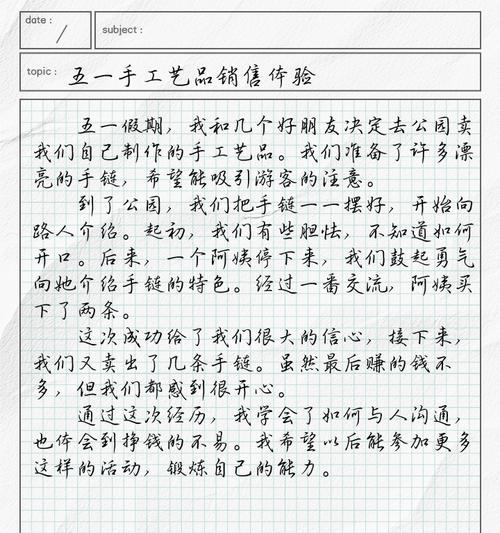 date :
/
subject :
topic : 五一手工艺品销售体验
五一假期，我和几个好朋友决定去公园卖
我们自己制作的手工艺品。我们准备了许多漂
亮的手链，希望能吸引游客的注意。
到了公园，我们把手链一一摆好，开始向
路人介绍。起初，我们有些胆怯，不知道如何
开口。后来，一个阿姨停下来，我们鼓起勇气
向她介绍手链的特色。经过一番交流，阿姨买
下了两条。
这次成功给了我们很大的信心，接下来，
我们又卖出了几条手链。虽然最后赚的钱不
多，但我们都感到很开心。
通过这次经历，我学会了如何与人沟通，
也体会到挣钱的不易。我希望以后能参加更多
这样的活动，锻炼自己的能力。